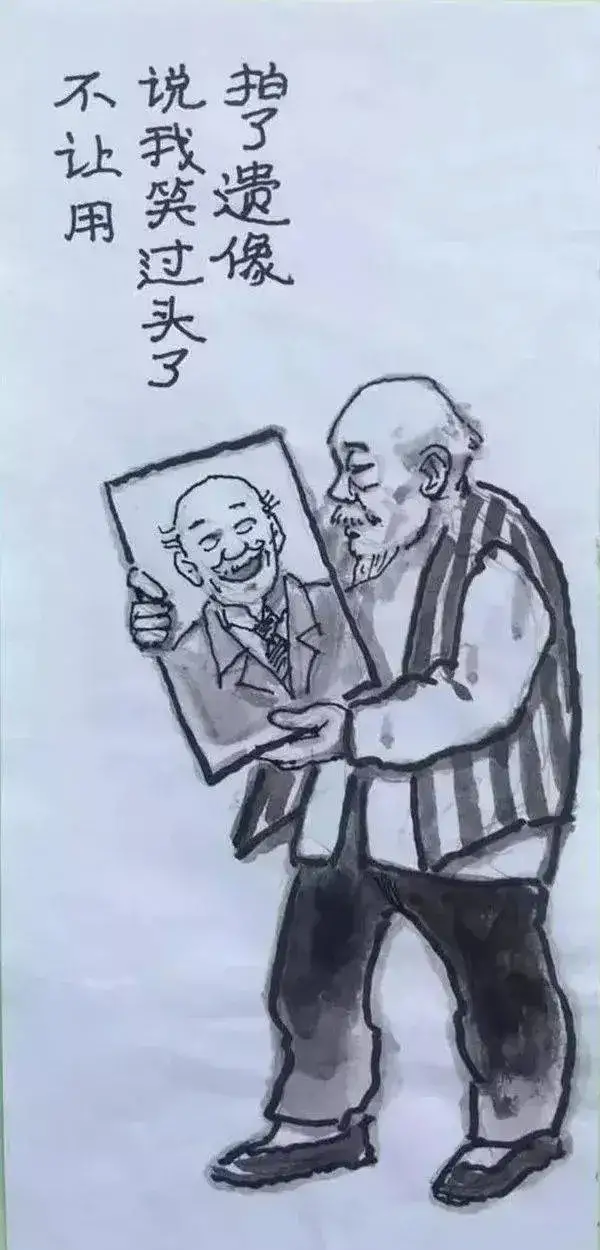 拍了遗像
说我笑过头了
不让用